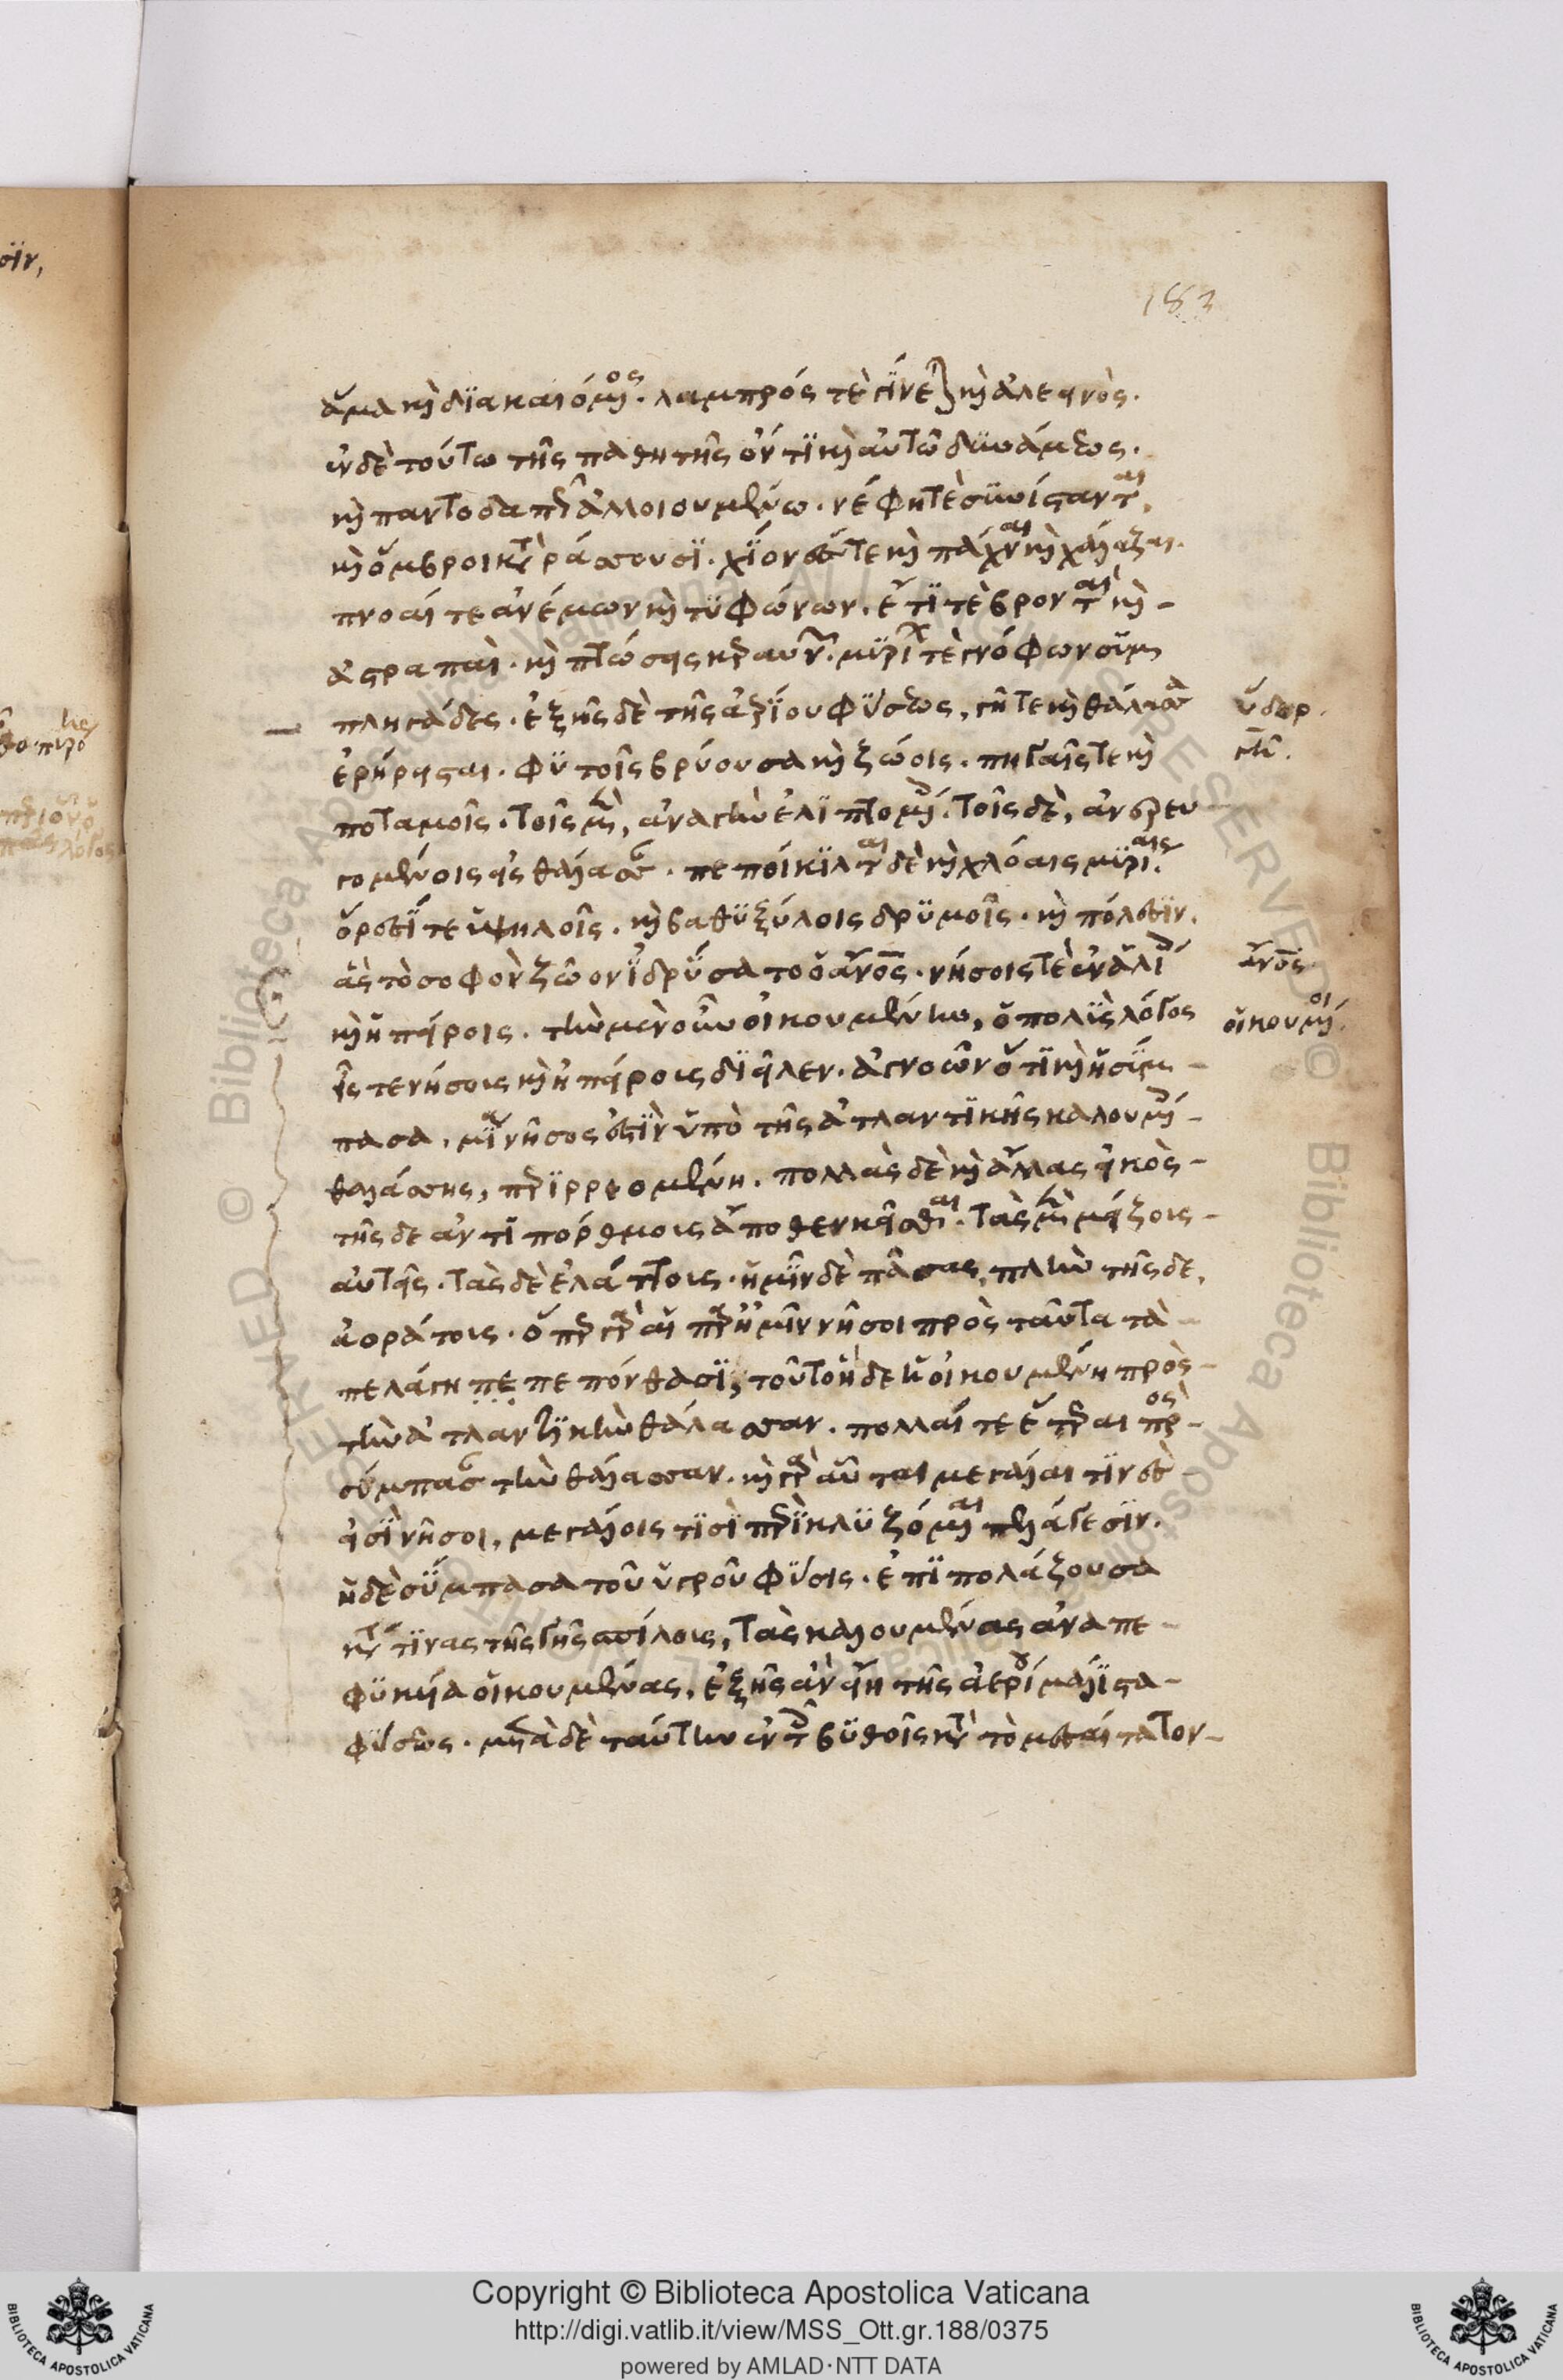 ἅμα καὶ διακαιόμενος. λαμπρός τε γίνεται καὶ ἀλεεινός.
ἐν δὲ τούτω τῆς παθητῆς ὄντι καὶ αὐτῶ δυνάμεως.
καὶ παντοδαπῶς ἀλλοιουμένω. νέφη τε συνίσταται,
καὶ ὄμβροι καταράσσουσι. χιόνες τε καὶ πάχναι καὶ χάλαζαι.
πνοαί τε ἀνέμων καὶ τυφώνων. ἔτι τε βρονταὶ καὶ
ἀστραπαὶ. καὶ πτώσεις κεραυνῶν. μυρίων τε γνόφων συμ
πληγάδες. ἑξῆς δὲ τῆς ἀερίου φύσεως, γῆ τε καὶ θάλασσα
ἐρήρεισται. φυτοῖς βρύουσα καὶ ζώοις. πηγαῖς τε καὶ
ποταμοῖς. τοῖς μὲν, ἀνὰ γῆν ἑλιττομένοις. τοῖς δὲ, ἀνερευ
γομένοις εἰς θάλασσαν. πεποίκιλται δὲ καὶ χλόαις μυρίαις.
ὄρεσί τε ὑψηλοῖς. καὶ βαθυξύλοις δρυμοῖς. καὶ πόλεσιν.
ἃς τὸ σοφὸν ζῶον ἱδρύσατο ὁ ἄνθρωπος. νήσοις τε ἐναλίοις
καὶ ἠπείροις. τὴν μὲν οὖν οἰκουμένην, ὁ πολὺς λόγος
εἴς τε νήσους καὶ ἠπείρους διεῖλεν. ἀγνοῶν ὅτι καὶ ἡ σύμ
πασα, μία νῆσος ἐστὶν ὑπὸ τῆς ἀτλαντικῆς καλουμένης
θαλάσσης, περιρρεομένη. πολλὰς δὲ καὶ ἄλλας εἰκὸς
τῆσδε ἀντιπόρθμους ἄποθεν κεῖσθαι. τὰς μὲν μείζους
αὐτῆς. τὰς δὲ ἐλάττους. ἡμῖν δὲ πάσας, πλὴν τῆσδε,
ἀοράτους. ὅπερ γὰρ αἱ παρ' ἡμῖν νῆσοι πρὸς ταῦτα τὰ
πελάγη πε πεπόνθασι, τοῦτο ἥδε ἡ οἰκουμένη πρὸς
τὴν ἀτλαντικὴν θάλασσαν. πολλαί τε ἕτεραι πρὸς
σύμπασαν τὴν θάλασσαν. καὶ γὰρ αὗται μεγάλαι τινὲς
εἰσὶ νῆσοι, μεγάλοις τισὶ περικλυζόμεναι πελάγεσιν.
ἡ δὲ σύμπασα τοῦ ὑγροῦ φύσις. ἐπιπολάζουσα
κατά τινας τῆς γῆς σπίλους, τὰς καλουμένας ἀναπε
φυκυῖα οἰκουμένας, ἑξῆς ἂν εἴη τῆς ἀερίου μάλιστα
φύσεως. μετὰ δὲ ταύτην ἐν τοῖς βυθοῖς κατὰ τὸ μεσαίτατον
ὕδωρ.
γῆ.
ἄνθρωπος.
οἰκουμένη.
Copyright © Biblioteca Apostolica Vaticana
http://digi.vatlib.it/view/MSS_Ott.gr.188/0375
powered by AMLAD·NTT DATA